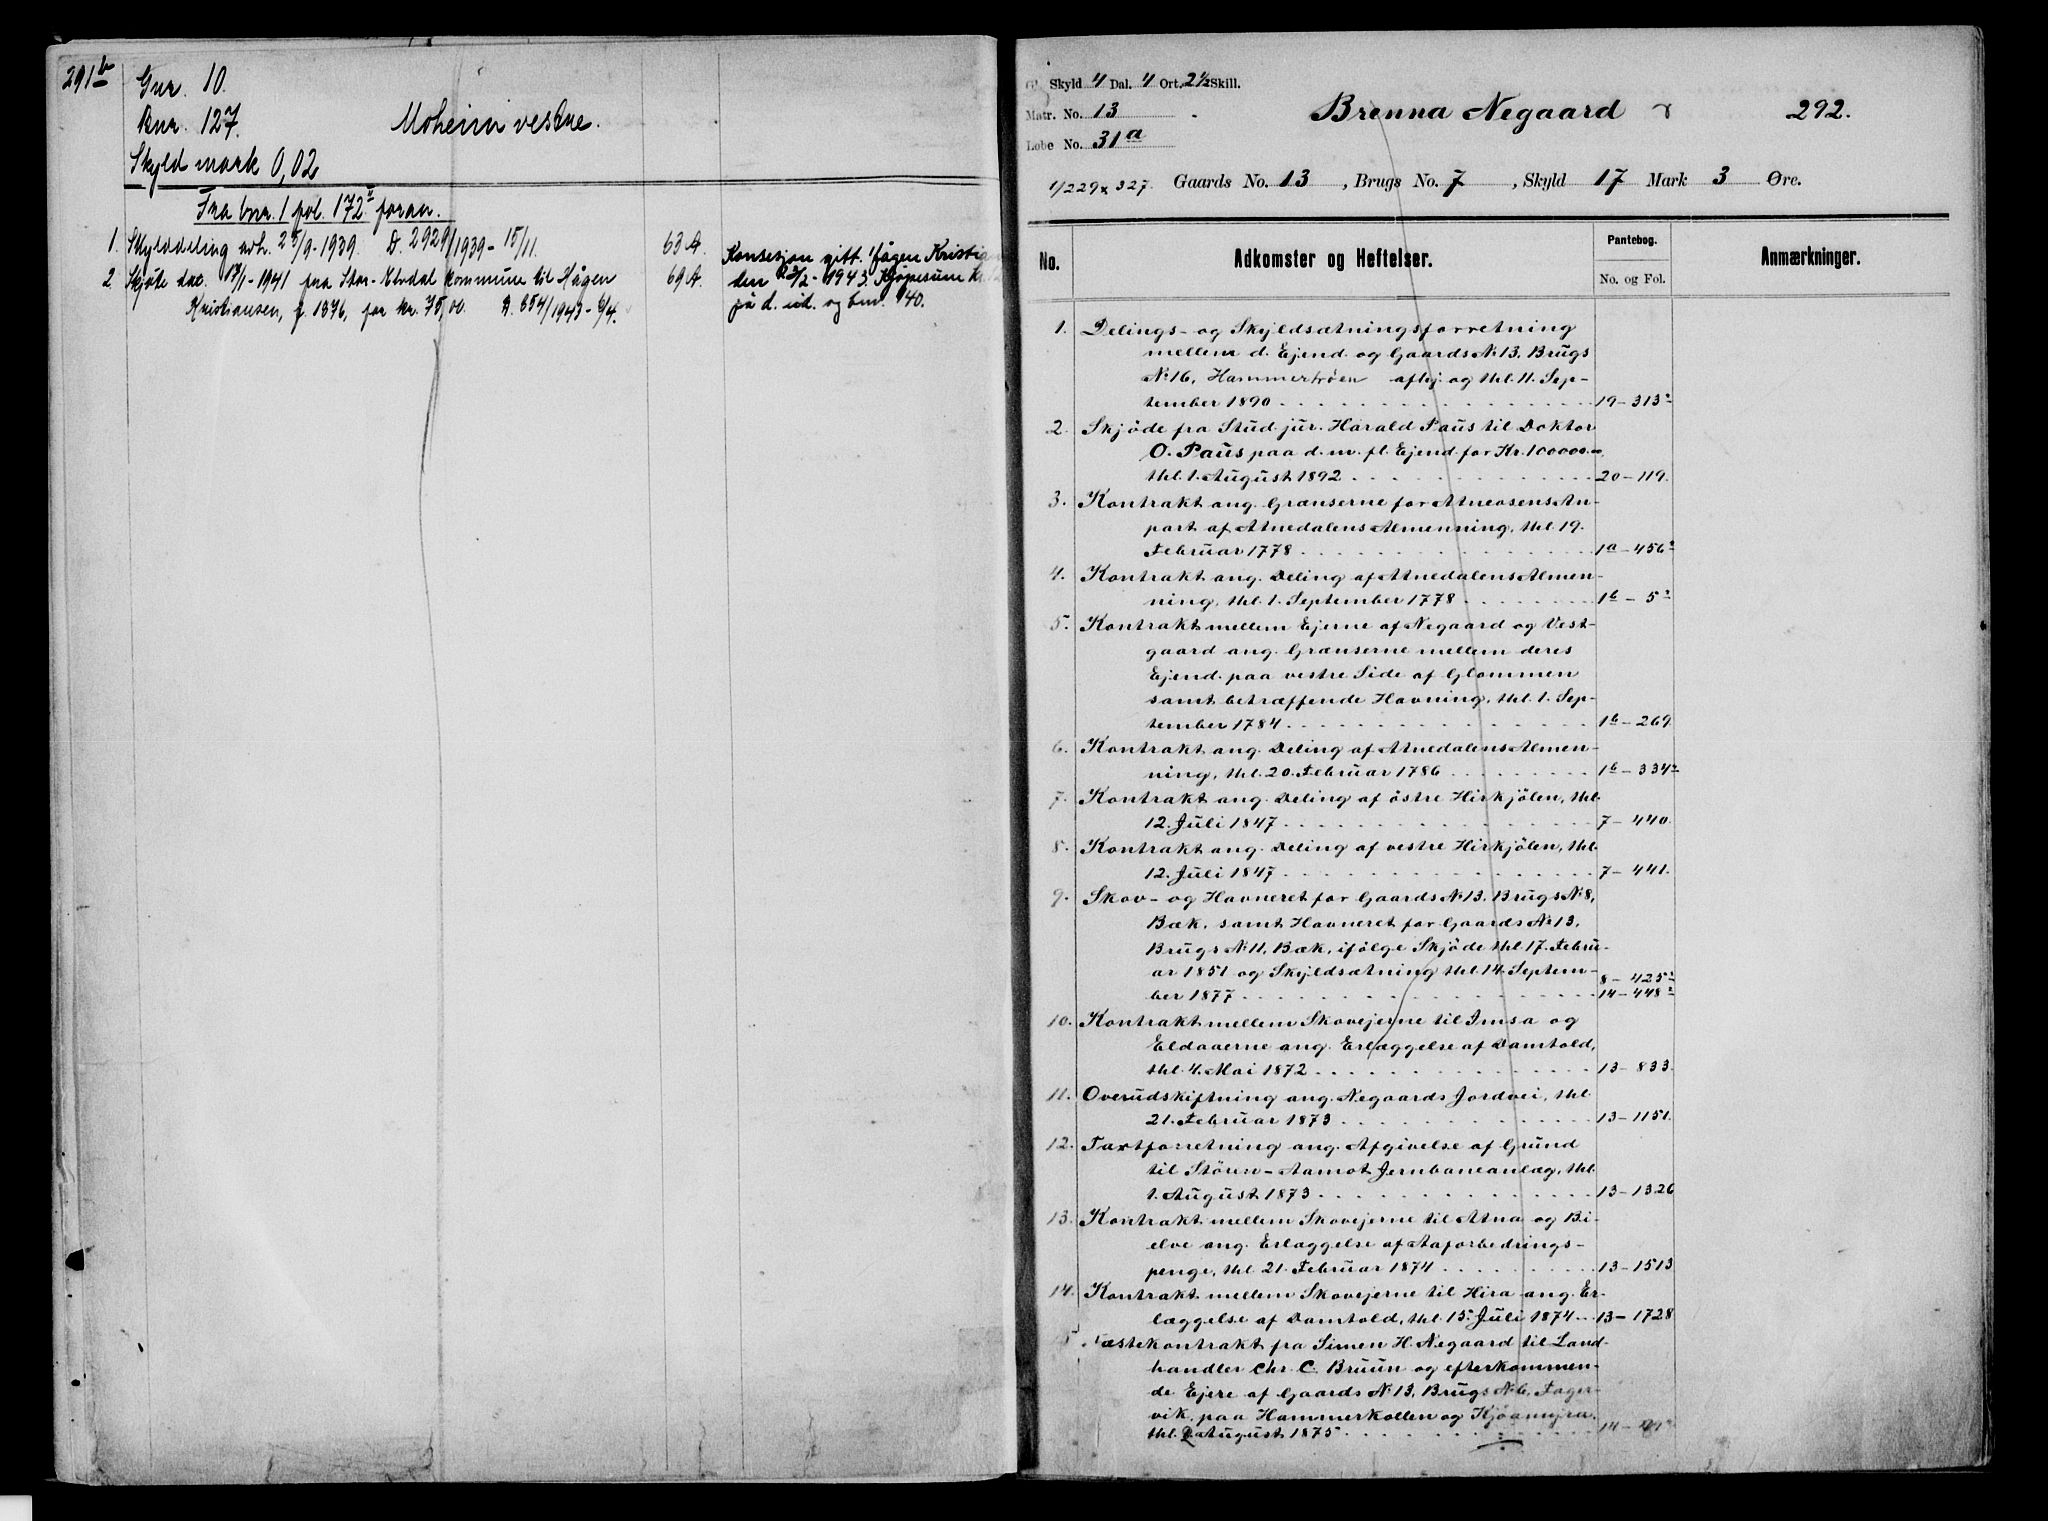 291b
Gnr. 10.
Bnr. 127.
Moheim vestre.
Skyld mark 0,02
Fra bnr. 1 fol. 172 foran.
1. Skylddeling avh. 25/9-1939. D. 2929/1939-15/11. 63 A.
2. Skjøte dat. 17/1-1941 fra Stor-Elvdal kommune til Hågen 69 A.
Kristiansen, f. 1876, for kr. 75,00. D. 654/1943-6/4.
Konsesjon gitt Hågen Kristian
den 23/2-1943. Kjøpesum kr.
på d. eid. og bnr. 140.
Gl. Skyld 4 Dal. 4 Ort. 2 1/2 Skill.
Matr. No. 13
Løbe No. 31a
Brenna Negaard
292.
1/229 x 327. Gaards No. 13, Brugs No. 7, Skyld 17 Mark 3 Øre.
No. Adkomster og Heftelser. Pantebog. No. og Fol. Anmærkninger.
1. Delings- og Skyldsætningsforretning
mellem d. Ejend. og Gaards No 13, Brugs
No 16, Hammertrøen afhj. og thl. 11. Sep-
tember 1890 19-313
2. Skjøde fra Stud. jur. Harald Paus til Doktor
O. Paus paa d. m. fl. Ejend. for Kr. 100000.00,
thl. 1. August 1892 20-119.
3. Kontrakt ang. Grænserne for Atneosens An-
part af Atnedalens Almenning, thl. 19.
Februar 1778 1a-456
4. Kontrakt ang. Deling af Atnedalens Almen-
ning, thl. 1. September 1778 1b-5
5. Kontrakt mellem Ejerne af Negaard og Vest-
gaard ang. Grænserne mellem deres
Ejend. paa vestre Side af Glommen
samt betræffende Havning, thl. 1. Sep-
tember 1784 1b-269
6. Kontrakt ang. Deling af Atnedalens Almen-
ning, thl. 20. Februar 1786 1b-334
7. Kontrakt ang. Deling af østre Hirkjølen, thl.
12. Juli 1847 7-440.
8. Kontrakt ang. Deling af vestre Hirkjølen, thl.
12. Juli 1847 7-441.
9. Skov- og Havneret for Gaards No 13, Brugs No 8,
Bæk, samt Havneret for Gaards No 13,
Brugs No 11, Bæk, ifølge Skjøde thl. 17. Febru-
ar 1851 og Skyldsætning thl. 14. Septem- 8-425
ber 1877 14-448
10. Kontrakt mellem Skovejerne til Imsa og
Eldaaerne ang. Erlæggelse af Damtold,
thl. 4. Mai 1872 13-833.
11. Overudskiftning ang. Negaards Jordvei, thl.
21. Februar 1873 13-1151.
12. Taxtforretning ang. Afgivelse af Grund
til Støren-Aamot Jernbaneanlæg, thl.
1. August 1873 13-1326
13. Kontrakt mellem Skovejerne til Atna og Bi-
elve ang. Erlæggelse af Aaforbedrings-
penge, thl. 21. Februar 1874 13-1513
14. Kontrakt mellem Skovejerne til Hira ang. Er-
læggelse af Damtold, thl. 15. Juli 1874 13-1728
15. Fæstekontrakt fra Simen H. Negaard til Land-
handler Chr. C. Bruun og efterkommen-
de Ejere af Gaards No 13, Brugs No 6, Fager-
vik, paa Hammerkollen og Kjøamyra,
thl. 2. August 1875 14-